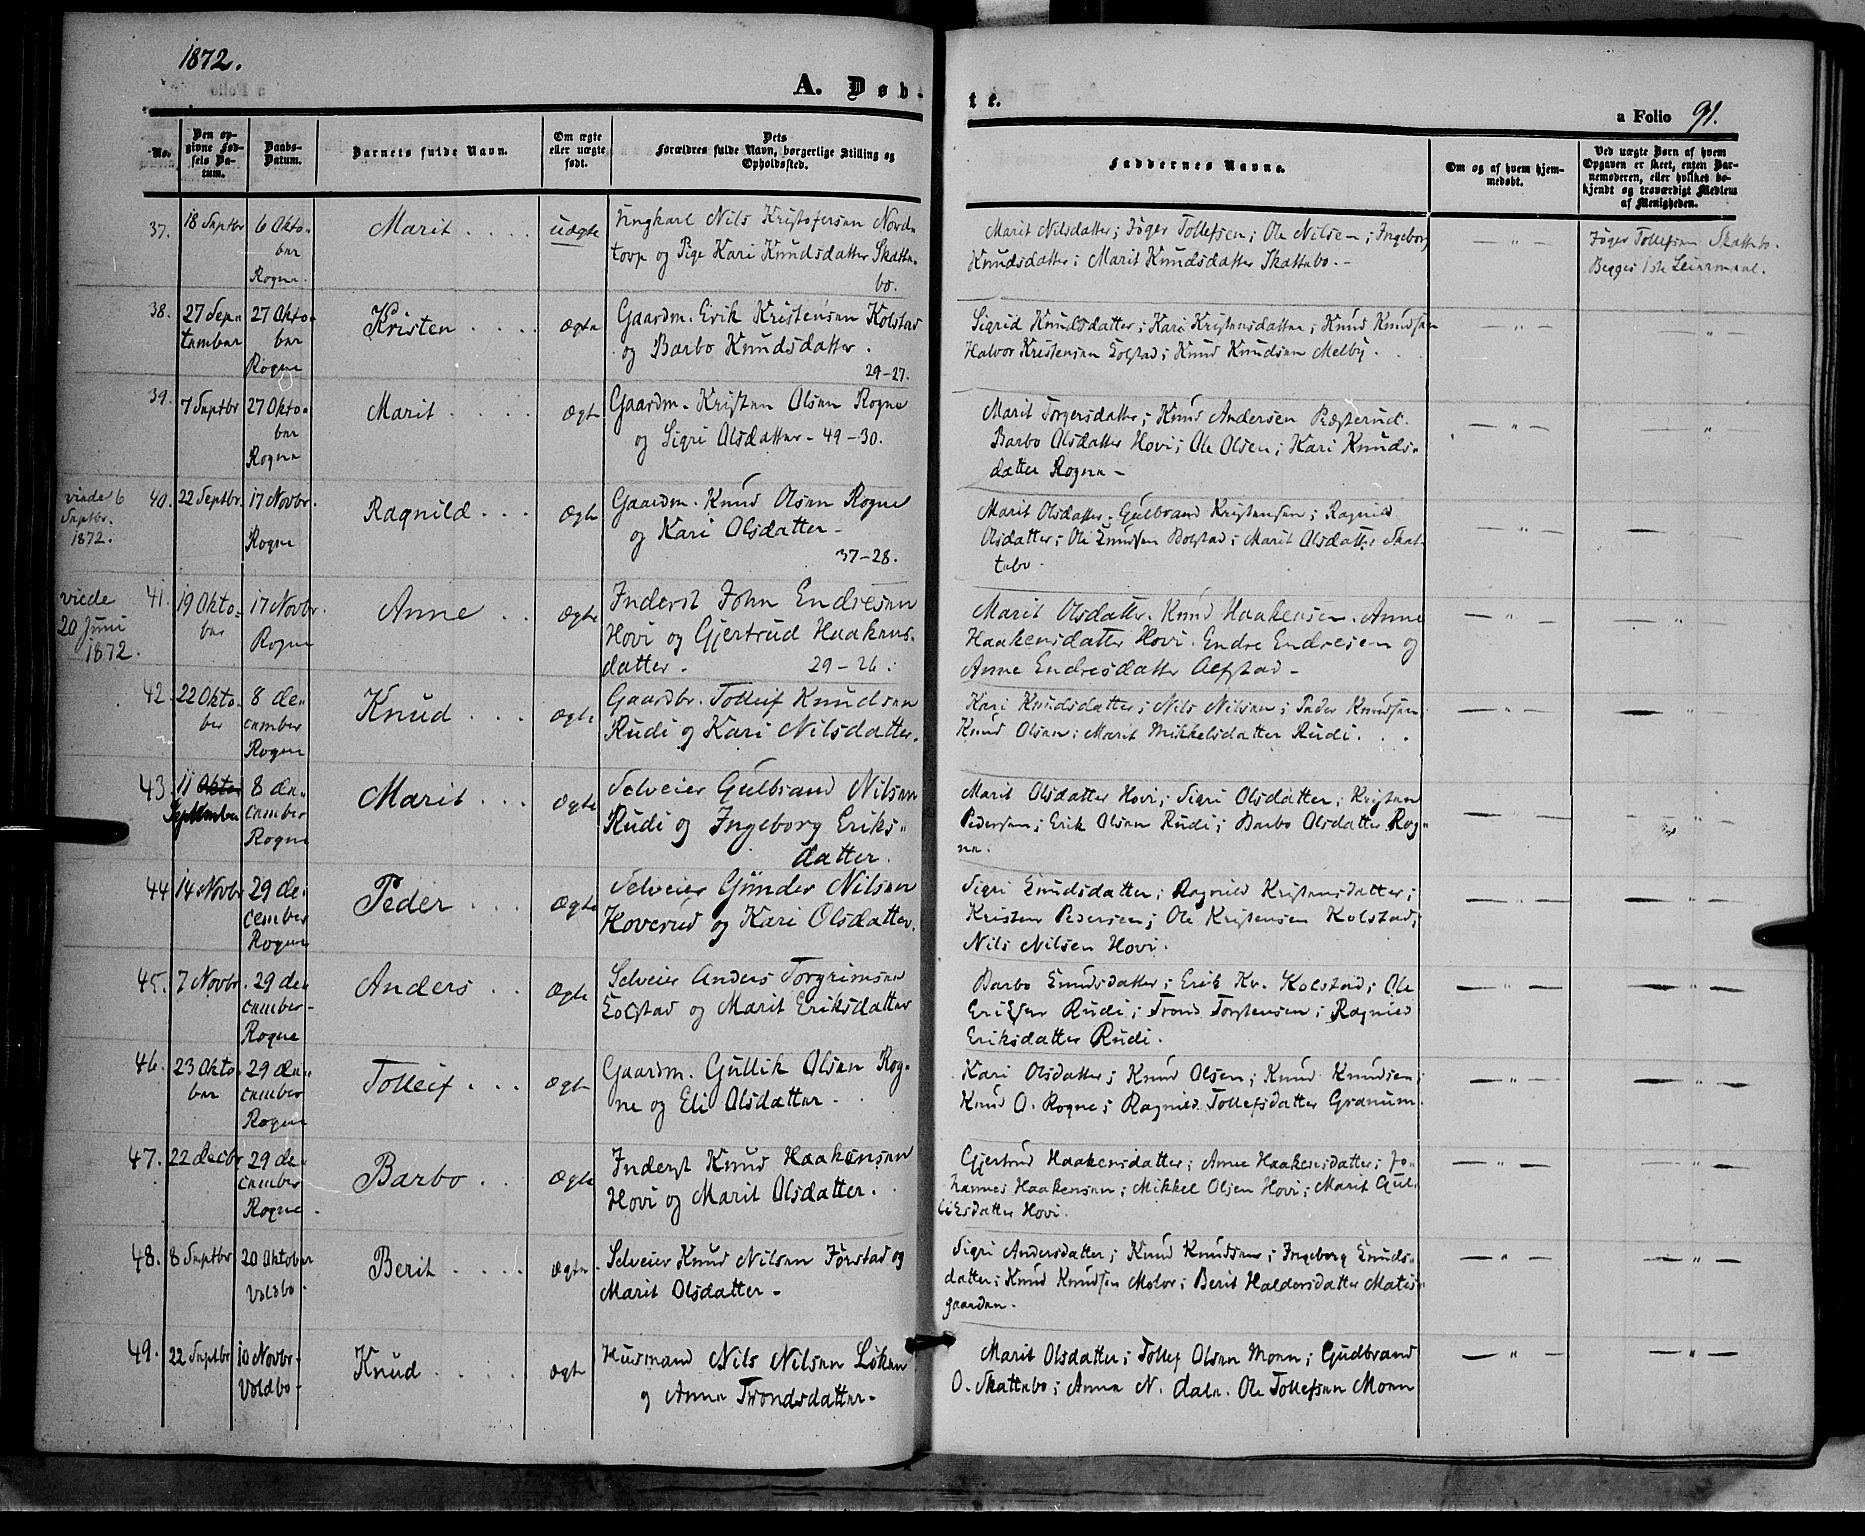 1872.
A. Døb-
te.
a Folio 91.
No.
Den op-
givne Fød-
sels Da-
tum.
Daabs-
Datum.
Barnets fulde Navn.
Om ægte
eller uægte
født.
Dets
Forældres fulde Navn, borgerlige Stilling og
Opholdssted.
Faddernes Navne.
Om og af hvem hjem-
medøbt.
Ved uægte Børn af hvem
Opgaven er skeet, enten Bar-
nemoderen, eller hvilket be-
kjendt og troværdigt Medlem
af Menigheden.
37. 18 Septbr 6 Okto- Marit uægte Ungkarl Nils Kristofersen Nord-
ber torp og Pige Kari Knudsdatter Skatte-
Rogne. bo.
Marit Nilsdatter; Jøger Tollefsen; Ole Nilsen; Ingeborg
Knudsdatter; Marit Knudsdatter Skattebo.-
Jøger Tollefsen Skattebo.
Begges 1ste Leiermaal.
38. 27 Sep- 27 Okto- Kristen ægte Gaardm. Erik Kristensen Kolstad
tember ber og Barbo Knudsdatter.
Rogne 29-27.
Sigrid Knudsdatter; Kari Kristensdatter; Knud Knudsen
Halvor Kristensen Kolstad; Knud Knudsen Melby.
39. 7 Septbr 27 Okto- Marit ægte Gaardm. Kristen Olsen Rogne
ber og Sigri Olsdatter- 49-30.
Rogne
Marit Torgersdatter; Knud Andersen Præsterud.
Barbo Olsdatter Hovi; Ole Olsen; Kari Knuds-
datter Rogne-
viede 6 40. 22 Septbr. 17 Novbr. Ragnild ægte Gaardm. Knud Olsen Rogne
Septbr. og Kari Olsdatter-
1872. Rogne 37-28.
Marit Olsdatter. Gulbrand Kristensen; Ragnild
Olsdatter; Ole Knudsen Bolstad; Marit Olsdatter Skat-
tebo.
viede 41. 19 Okto- 17 Novbr. Anne ægte Inderst John Endresen
20 Juni ber Rogne Hovi og Gjertrud Haakens-
1872. datter. 29-26.
Marit Olsdatter. Knud Haakensen. Anne
Haakensdatter Hovi. Endre Endresen og
Anne Endresdatter Alfstad-
42. 22 Okto- 8 de- Knud ægte Gaardbr. Tolleif Knudsen
ber cember Rudi og Kari Nilsdatter.
Rogne
Kari Knudsdatter; Nils Nilsen; Peder Knudsen;
Knud Olsen; Marit Mikkelsdatter Rudi.
43. 11 Okto 8 de- Marit ægte Selveier Gulbrand Nilsen
September cember Rudi og Ingeborg Eriks-
Rogne datter.
Marit Olsdatter Hovi; Sigri Olsdatter; Kristen
Pedersen; Erik Olsen Rudi; Barbo Olsdatter Rog-
ne.
44 14 Novbr 29 de- Peder ægte Selveier Gunder Nilsen
cember Hoverud og Kari Olsdatter.
Rogne
Sigri Knudsdatter; Ragnild Kristensdatter;
Kristen Pedersen; Ole Kristensen Kolstad;
Nils Nilsen Hovi.
45. 7 Novbr. 29 de- Anders ægte Selveier Anders Torgrimsen
cember- Kolstad og Marit Eriksdatter
Rogne
Barbo Knudsdatter; Erik Kr. Kolstad; Ole
Eriksen Rudi; Trond Torstensen; Ragnild
Eriksdatter Rudi.
46. 23 Okto- 29 de- Tolleif ægte Gaardm. Gullik Olsen Rog-
ber cember ne og Eli Olsdatter.
Rogne
Kari Olsdatter; Knud Olsen; Knud Knudsen;
Knud O. Rogne; Ragnild Tollefsdatter Granum.
47. 22 decbr 29 de- Barbo ægte Inderst Knud Haakensen
cember Hovi og Marit Olsdatter.
Rogne.
Gjertrud Haakensdatter; Anne Haakensdatter; Jo-
hannes Haakensen; Mikkel Olsen Hovi; Marit Gul-
liksdatter Hovi.
48. 8 Septbr 20 Oktober Berit ægte Selveier Knud Nilsen Jørstad og
Voldbo Marit Olsdatter-
Sigri Andersdatter; Knud Knudsen; Ingeborg Knuds-
datter; Knud Knudsen Molov; Berit Haldorsdatter Matis-
gaarden.
49. 22 Septbr 10 Novbr. Knud ægte Husmand Nils Nilsen Løken
Voldbo og Anne Trondsdatter-
Marit Olsdatter; Tollef Olsen Moen; Gudbrand
O. Skattebo; Anne N. Dale. Ole Tollefsen Moen